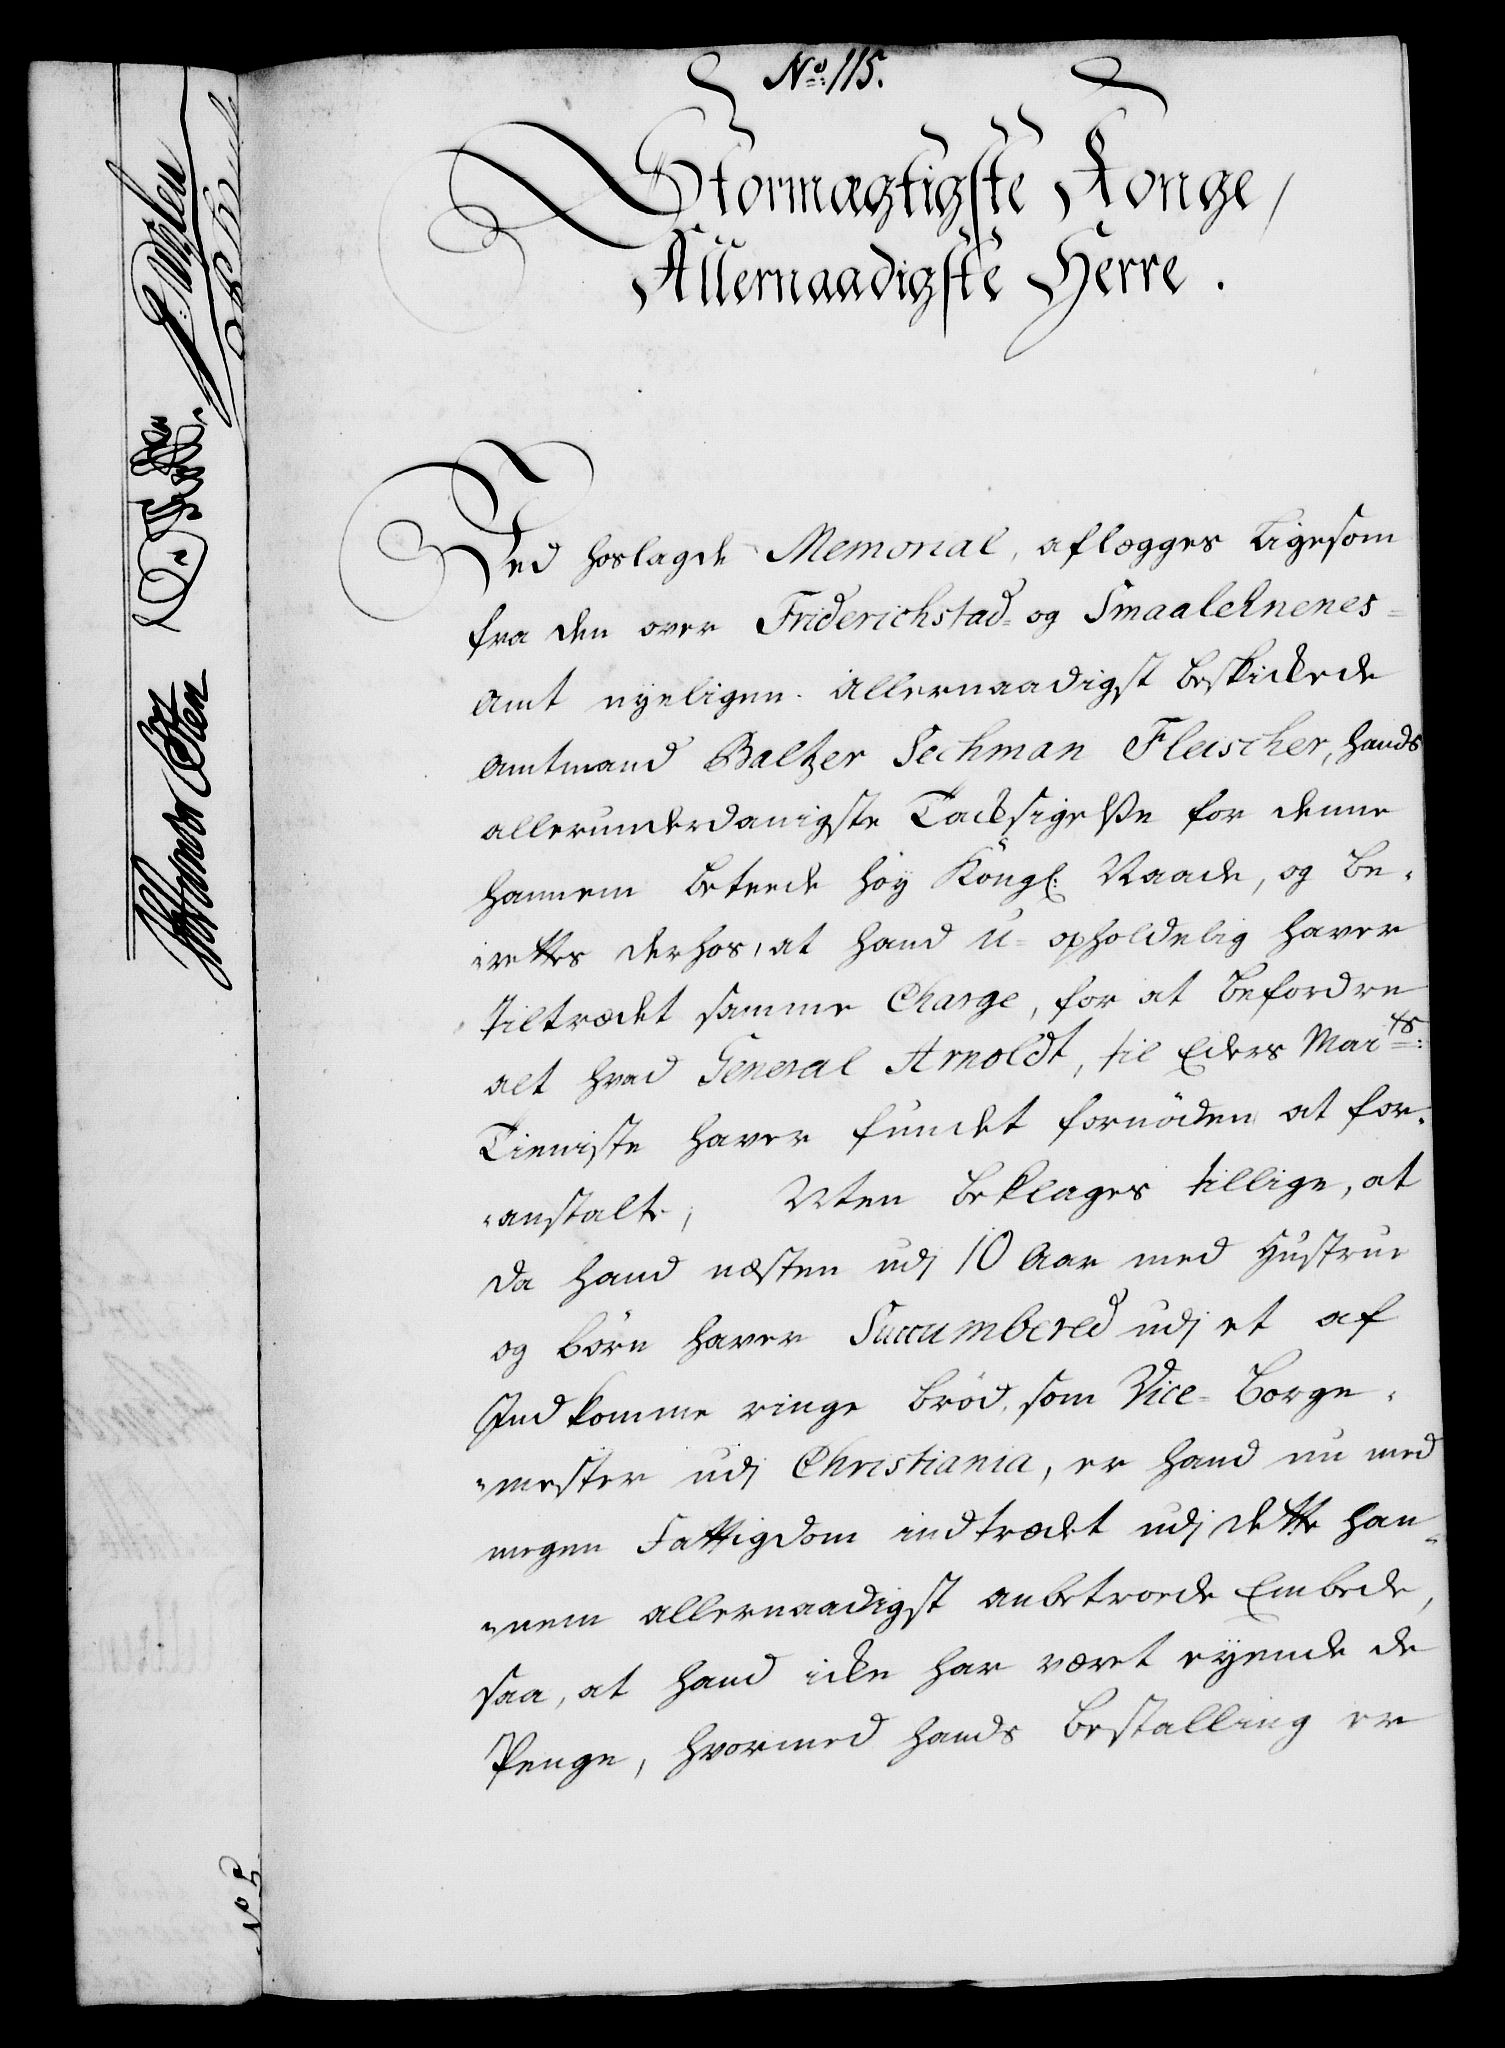 No: 115.
Stormægtigste Konge,
Allernaadigste Herre.
Ved hoslagde Memorial, aflægges ligesom
fra den over Friderichstad- og Smaalehnenes-
Amt nyeligen allernaadigst beskickede
Amtmand Baltzer Sechman Fleischer, hands
allerunderdanigste Tacksigelse for denne
hannem beteede høy Kongl: Naade, og be-
rettes derhos, at hand u-opholdelig haver
tiltrædet samme Charge, for at befordre
alt hvad General Arnoldt, til Eders Maits:
Tieniste haver fundet fornöden at for-
anstalte, Men beklages tillige, at
da hand næsten udj 10 Aar med Hustrue
og börn haver Succumbered udj et af
Indkomme ringe bröd, som Vice-Borge-
mester udj Christiania, er hand nu med
megen Fattigdom indtrædet udj dette han-
nem allernaadigst anbetroede Embede,
saa, at hand icke har været eyende de
Penge, hvormed hands bestalling er
No